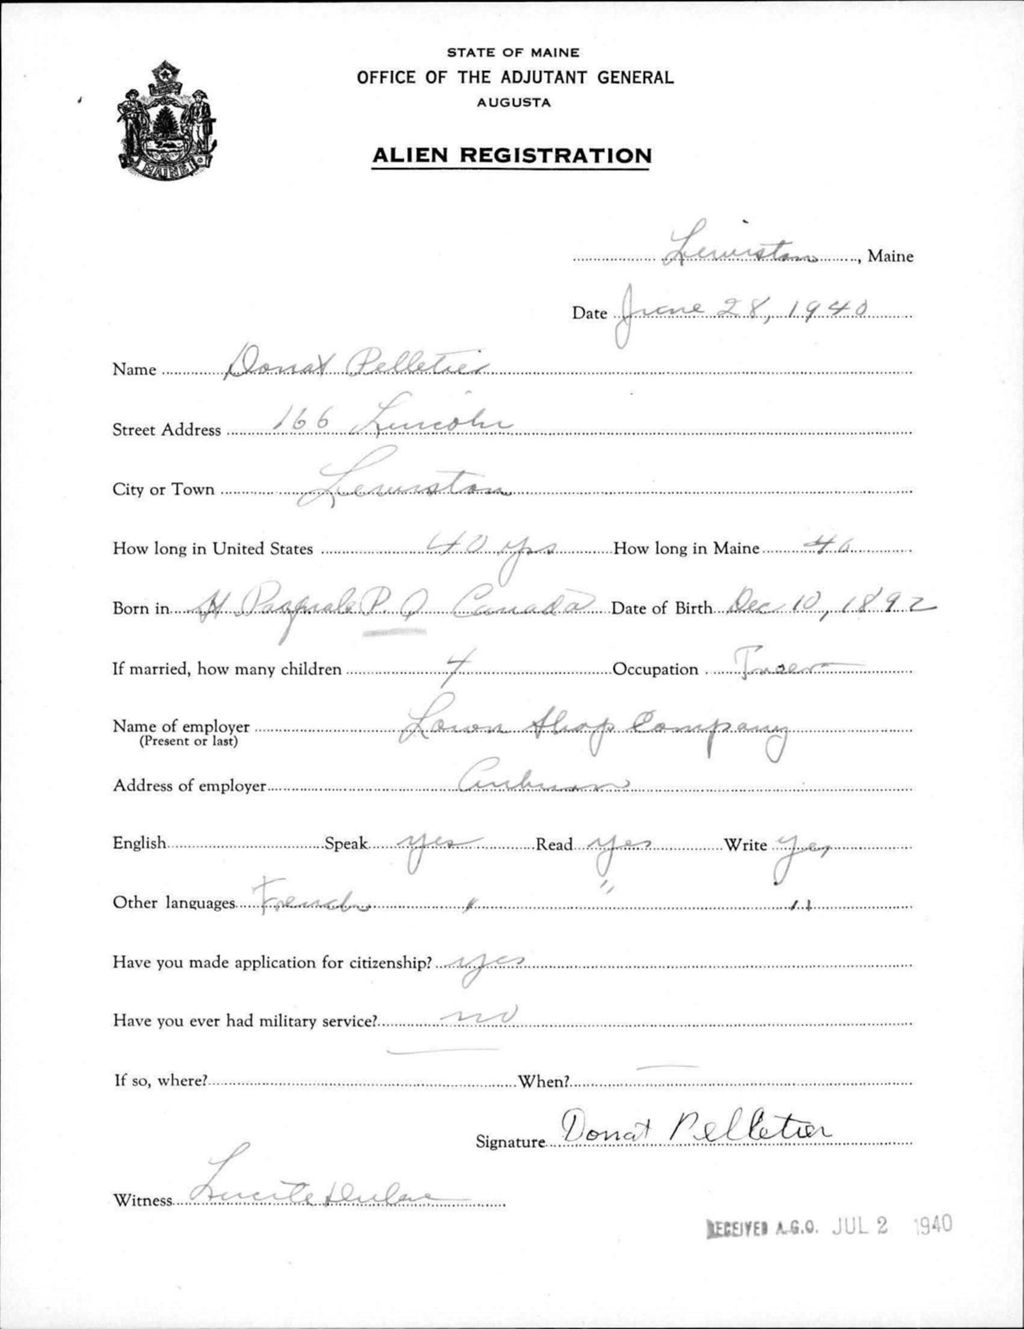 STATE OF MAINE
OFFICE OF THE ADJUTANT GENERAL
AUGUSTA
ALIEN REGISTRATION
MAINE
Lewiston, Maine
Date June 28, 1940
Name Donat Pelletier
Street Address 166 Lincoln
City or Town Lewiston
How long in United States 40 yrs How long in Maine 40
Born in St Pasquale P. Q Canada Date of Birth Dec 10, 1892
If married, how many children 4 Occupation
Name of employer Shop Company
(Present or last)
Address of employer Auburn
English Speak yes Read yes Write yes
Other languages French " " "
Have you made application for citizenship? yes
Have you ever had military service? no
If so, where? — When? —
Signature Donat Pelletier
Witness Lucile
RECEIVED A.G.O. JUL 2 1940